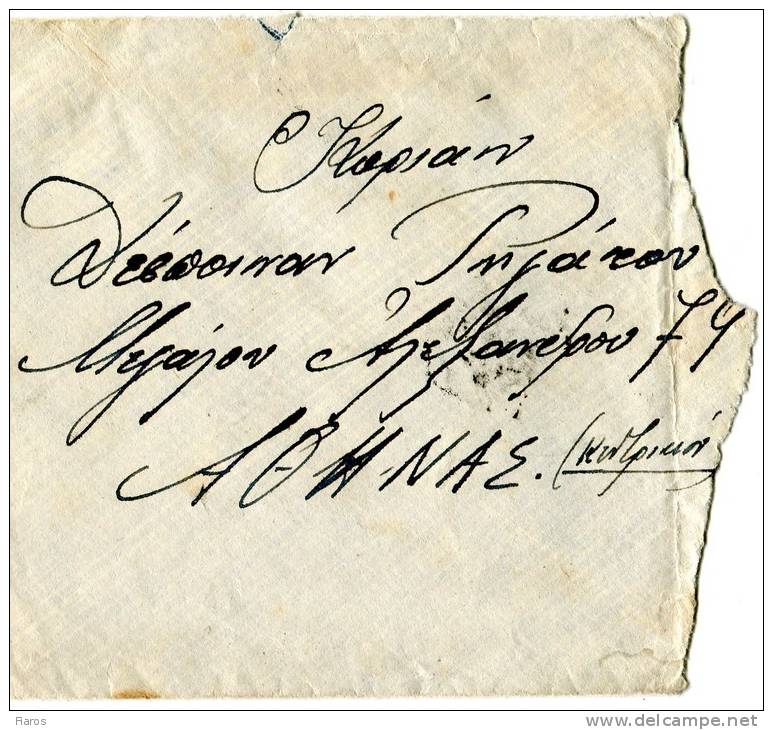 Κυρίαν
Δέσποιναν Ρηγάτου
Μεγάλου Αλεξάνδρου 74
ΑΘΗΝΑΣ. (Κεντρικόν)
Raros
www.delcampe.net